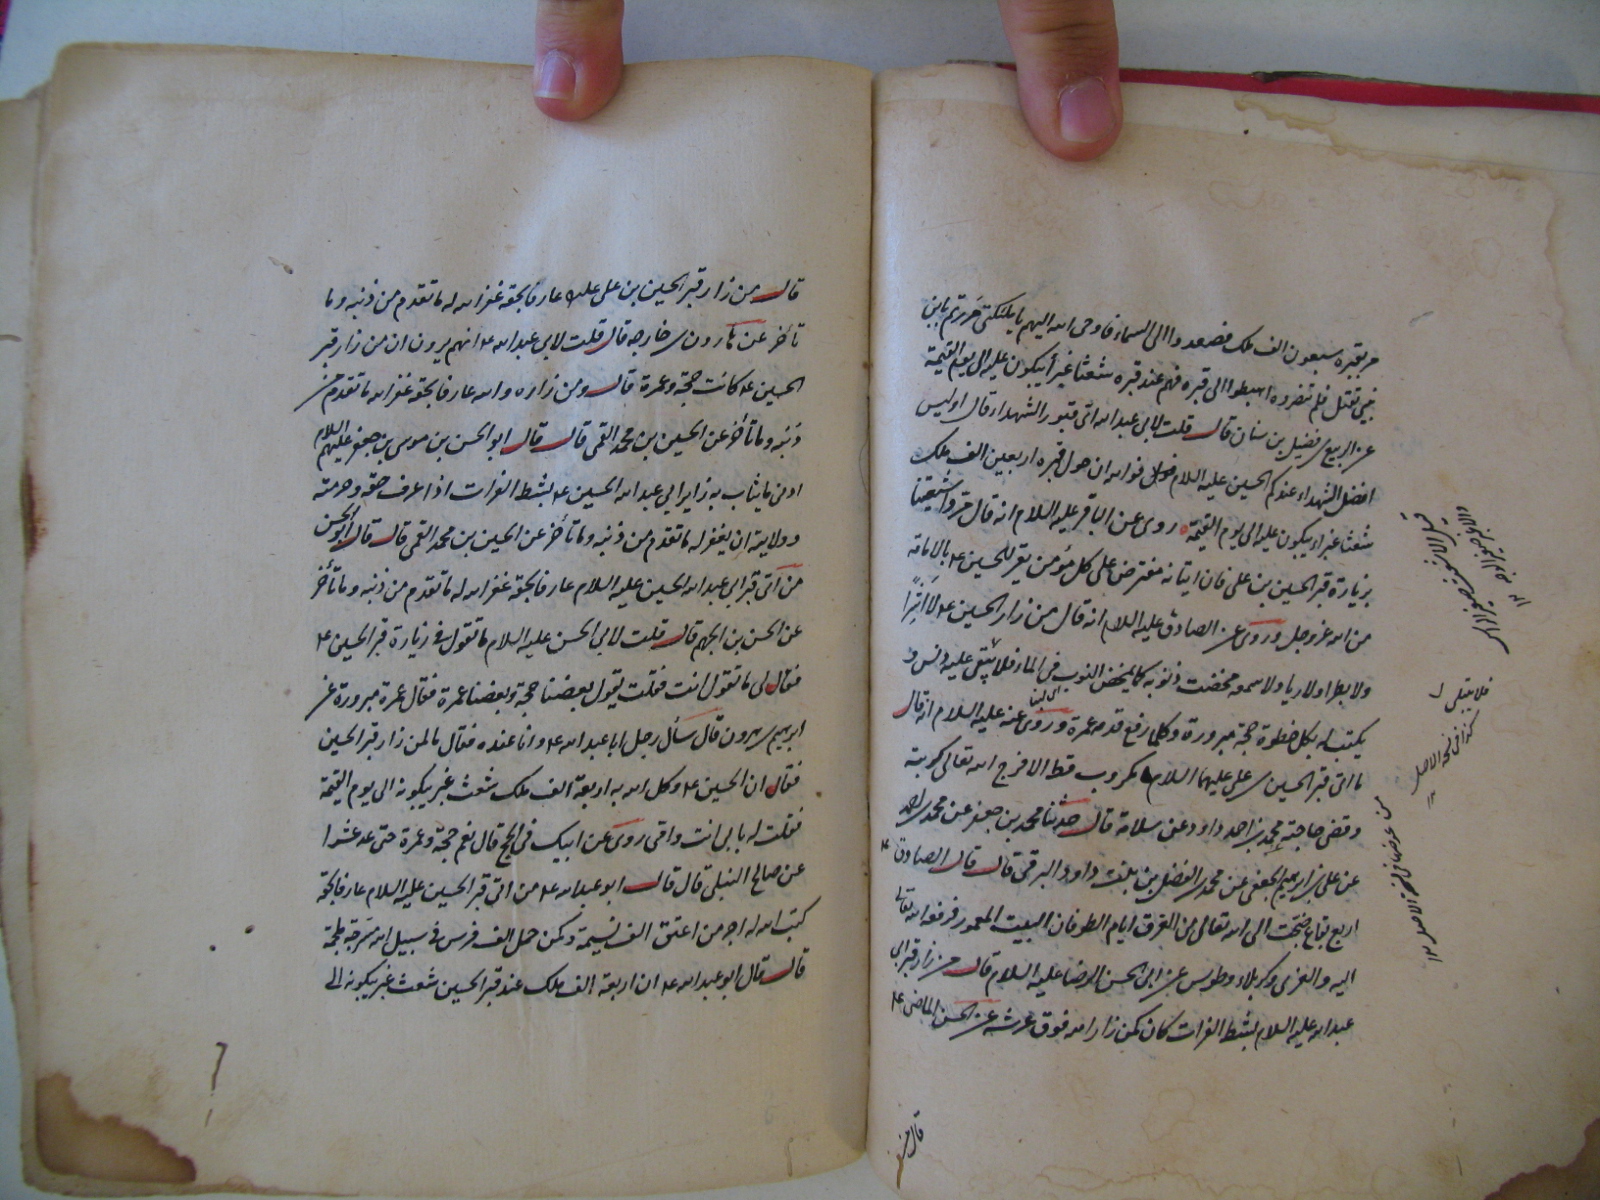 مر بقبره سبعون الف ملك فصعدوا الى السماء فاوحى الله اليهم يا ملئكتى مررتم بابن
نبيى يقتل فلم تنصروه اهبطوا الى قبره فهم عند قبره شعثا غبرا يبكون عليه الى يوم القيمة
عن الربيع بن فضيل بن سنان قال قلت لابى عبد الله اى قبور الشهداء قال اوليس
افضل الشهداء عندكم الحسين عليه السلام فو الله ان حول قبره اربعين الف ملك
شعثا غبرا يبكون عليه الى يوم القيمة روى عن الباقر عليه السلام انه قال مروا شيعتنا
بزيارة قبر الحسين بن على فان اتيانه مفترض على كل مؤمن يقر للحسين ع بالامامة
من الله عز وجل وروى عن الصادق عليه السلام انه قال من زار الحسين ع لا اشرا
ولا بطرا ولا رياء ولا سمعة محصت ذنوبه كما يمحص الثوب فى الماء فلا يبقى عليه دنس و
يكتب له بكل خطوة حجة مبرورة وكلما رفع قدمه عمرة وروى عنه عليه السلام انه قال
ما اتى قبر الحسين بن على عليهما السلام مكروب قط الا فرج الله تعالى كربته
وقضى حاجته محمد بن احمد داود عن سلامة قال حدثنا محمد بن جعفر عن محمد بن احمد
عن على بن ابراهيم الجعفى عن محمد بن الفضل بن بنت داود البرقى قال قال الصادق ع
اربع بقاع ضجت الى الله تعالى من الغرق ايام الطوفان البيت المعمور فرفعه الله تعالى
اليه والغرى وكربلاء وطوس عن ابى الحسن الرضا عليه السلام قال من زار قبر ابى
عبد الله عليه السلام بشط الفرات كان كمن زار الله فوق عرشه عن الحسن الماضى ع
قال من
قال من زار قبر الحسين بن على عليه عارفا بحقه غفر الله له ما تقدم من ذنبه وما
تأخر عن هارون بن خارجه قال قلت لابى عبد الله ع انهم يرون ان من زار قبر
الحسين ع كانت حجة وعمرة قال ومن زاره والله عارفا بحقه غفر الله ما تقدم من
ذنبه وما تأخر عن الحسين بن محمد القمى قال قال ابو الحسن بن موسى بن جعفر عليهم السلام
ادنى ما يثاب به زاير ابى عبد الله الحسين ع بشط الفرات اذا عرف حقه وحرمته
وولايته ان يغفر له ما تقدم من ذنبه وما تأخر عن الحسين بن محمد القمى قال قال ابو الحسن
من اتى قبر ابى عبد الله الحسين عليه السلام عارفا بحقه غفر الله له ما تقدم من ذنبه وما تأخر
عن الحسن بن الجهم قال قلت لابى الحسن عليه السلام ما تقول فى زيارة قبر الحسين ع
فقال لى ما تقول انت فقلت يقول بعضنا حجة وبعضنا عمرة فقال عمرة مبرورة عن
ابرهيم بن هرون قال سأل رجل ابا عبد الله ع وانا عنده فقال ما لمن زار قبر الحسين
فقال ان الحسين ع وكل الله به اربعة الف ملك شعث غبر يبكونه الى يوم القيمة
فقلت له بابى انت وامى روى عن ابيك فى الحج قال نعم حجة وعمرة حتى عد عشرا
عن صالح النيلى قال قال ابو عبد الله ع من اتى قبر الحسين عليه السلام عارفا بحقه
كتب الله له اجر من اعتق الف نسمة وكمن حمل الف فرس فى سبيل الله مسرجة ملجمة
قال قال ابو عبد الله ع ان اربعة الف ملك عند قبر الحسين شعث غبر يبكونه الى